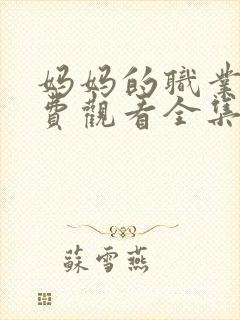 妈妈的職業
費觀看全集
蘇雪燕